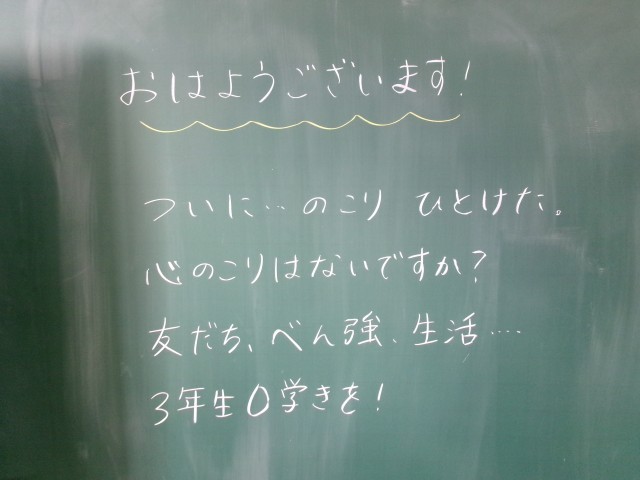 おはようございます!
ついに‥のこり ひとけた。
心のこりはないですか?
友だち、べん強、生活‥‥
3年生0学きを!